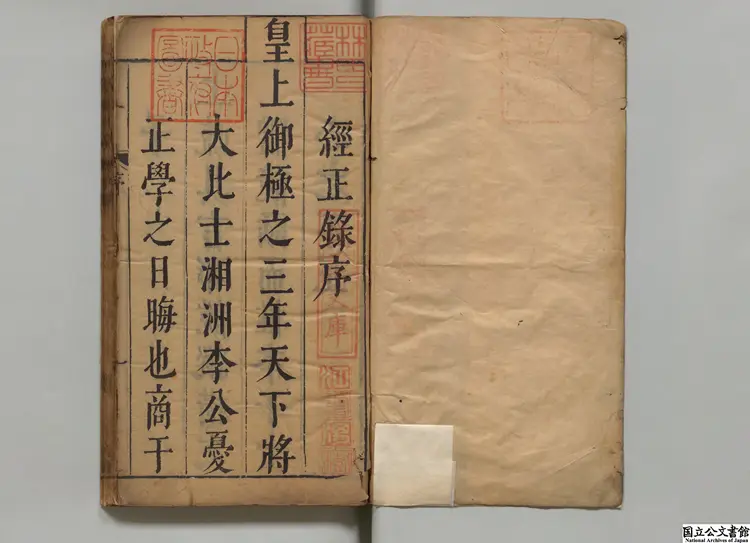 經正錄序
皇上御極之三年天下將
大比士湘洲李公憂
正學之日晦也商于
序
林氏
藏書
日本
政府
圖書
國立公文書館
National Archives of Japan